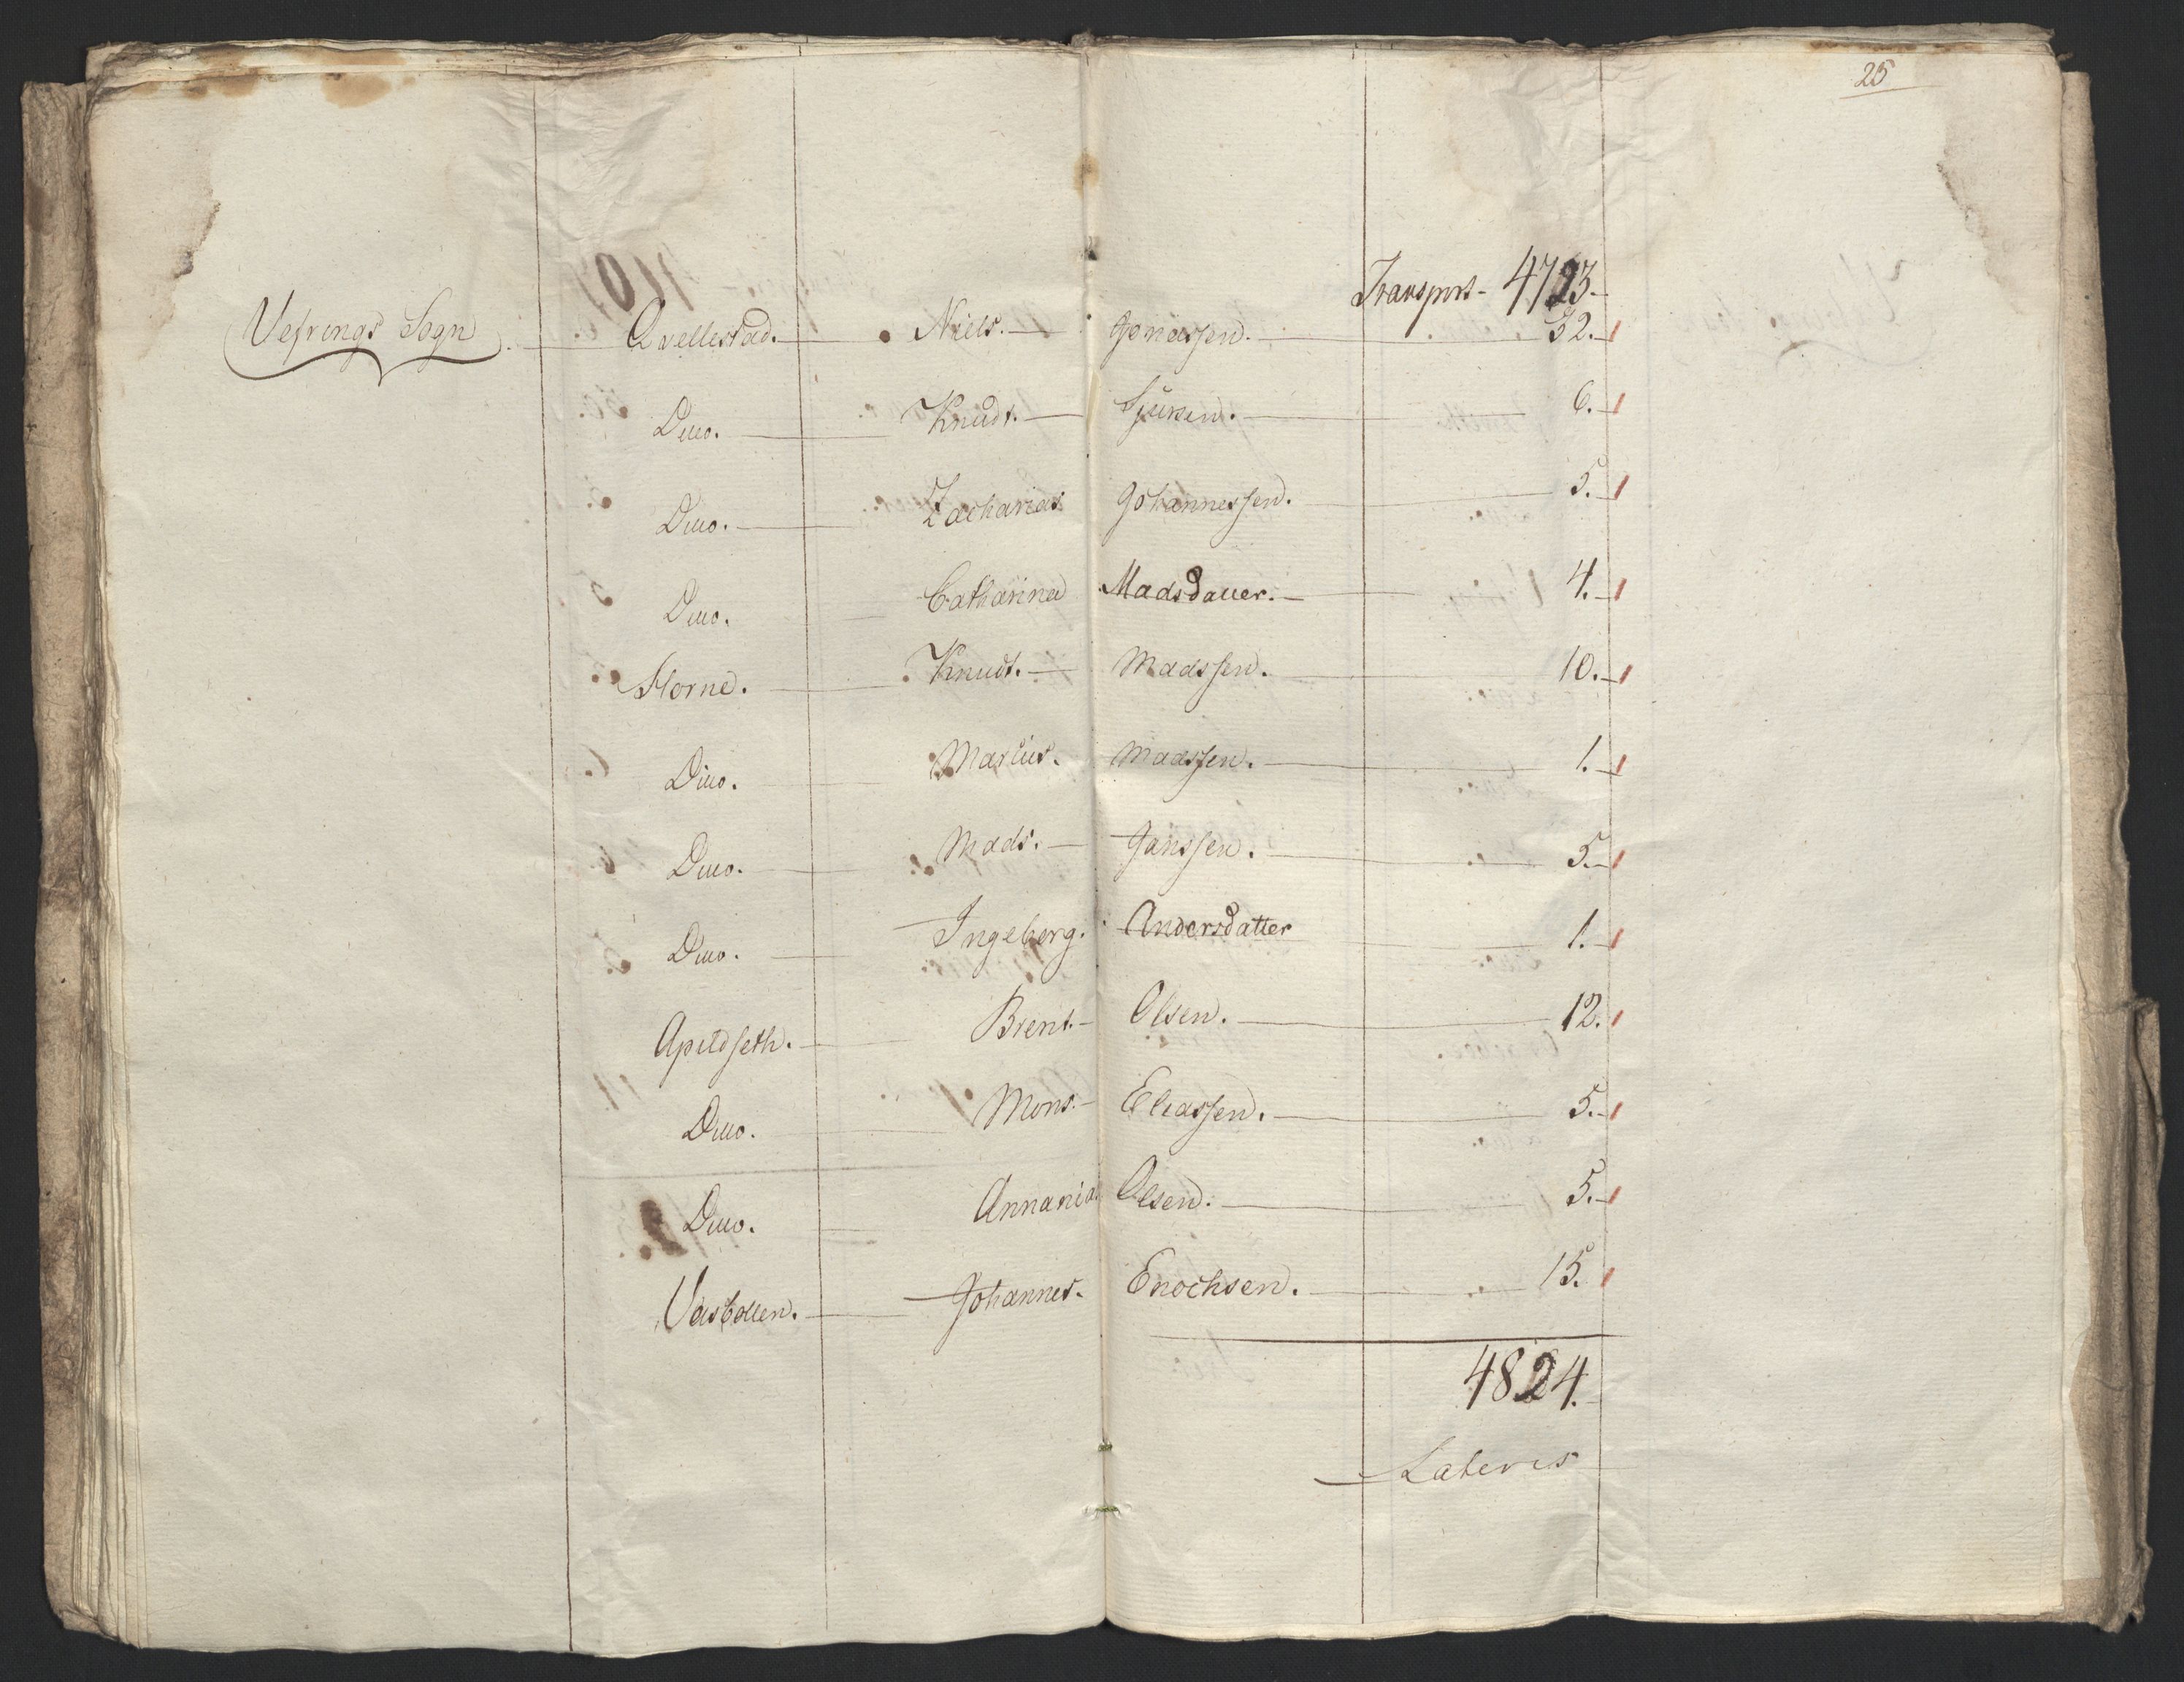 25
Transport - 4723.
Vefrings Sogn. Qvellestad. Niels. Jonassen. 32.
Ditto. Knudt. Sjursen. 6.
Ditto. Zacharias Johannessen. 5.
Ditto. Catharina Madsdatter. 4.
Horne. Knudt. Madssen. 10.
Ditto. Marcus. Madssen. 1.
Ditto. Mads. Janssen. 5.
Ditto. Ingeberg. Andersdatter 1.
Apildseth. Brent. Olsen. 12.
Ditto. Mons. Eliassen. 5.
Ditto. Annanias Olsen. 5.
Johannes. Enochsen. 15.
4824.
Lateris